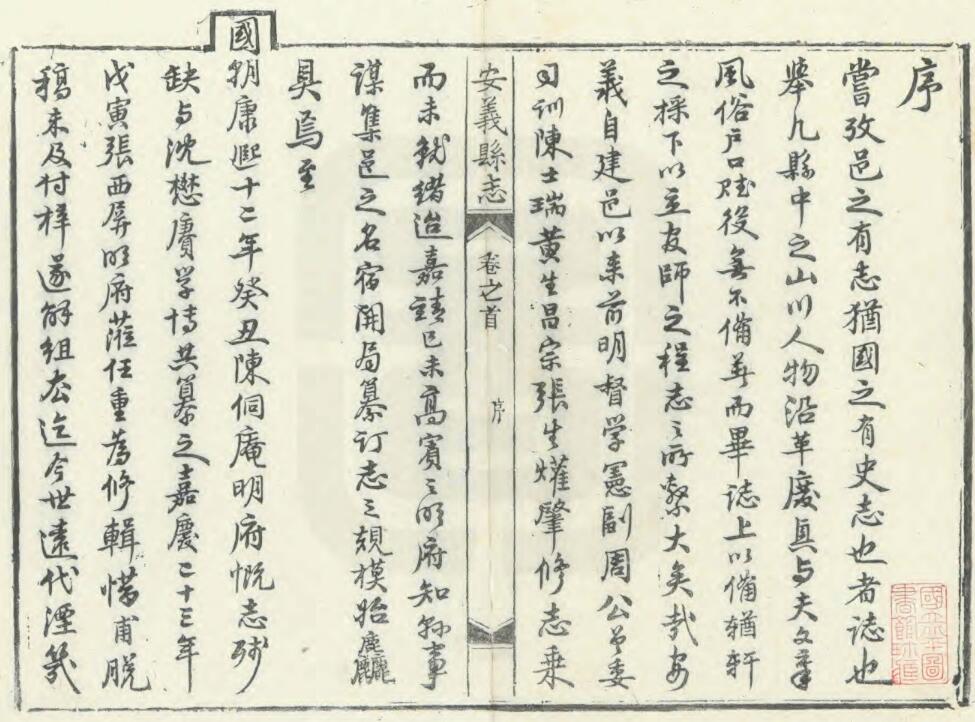 序
嘗攷邑之有志猶國之有史志也者誌也
舉凡縣中之山川人物沿革廢與夫文章
風俗戶口賦役無不備葺而畢誌上以備輶軒
之採下以立友師之程志之所繫大矣哉安
義自建邑以來前明督學憲副周公曾委
司訓陳士瑞黃生昌宗張生燿肇修志乘
安義縣志 卷之首 序
而未就緒迨嘉靖己未高賓之明府知縣事
謀集邑之名宿開局纂訂志之規模始麤
具焉至
國朝康熙十二年癸丑陳侗庵明府慨志殘
缺与沈懋賡學博共纂之嘉慶二十三年
戊寅張西屏明府蒞任重為修輯惜甫脫
稿未及付梓遂解組去迄今世遠代湮幾